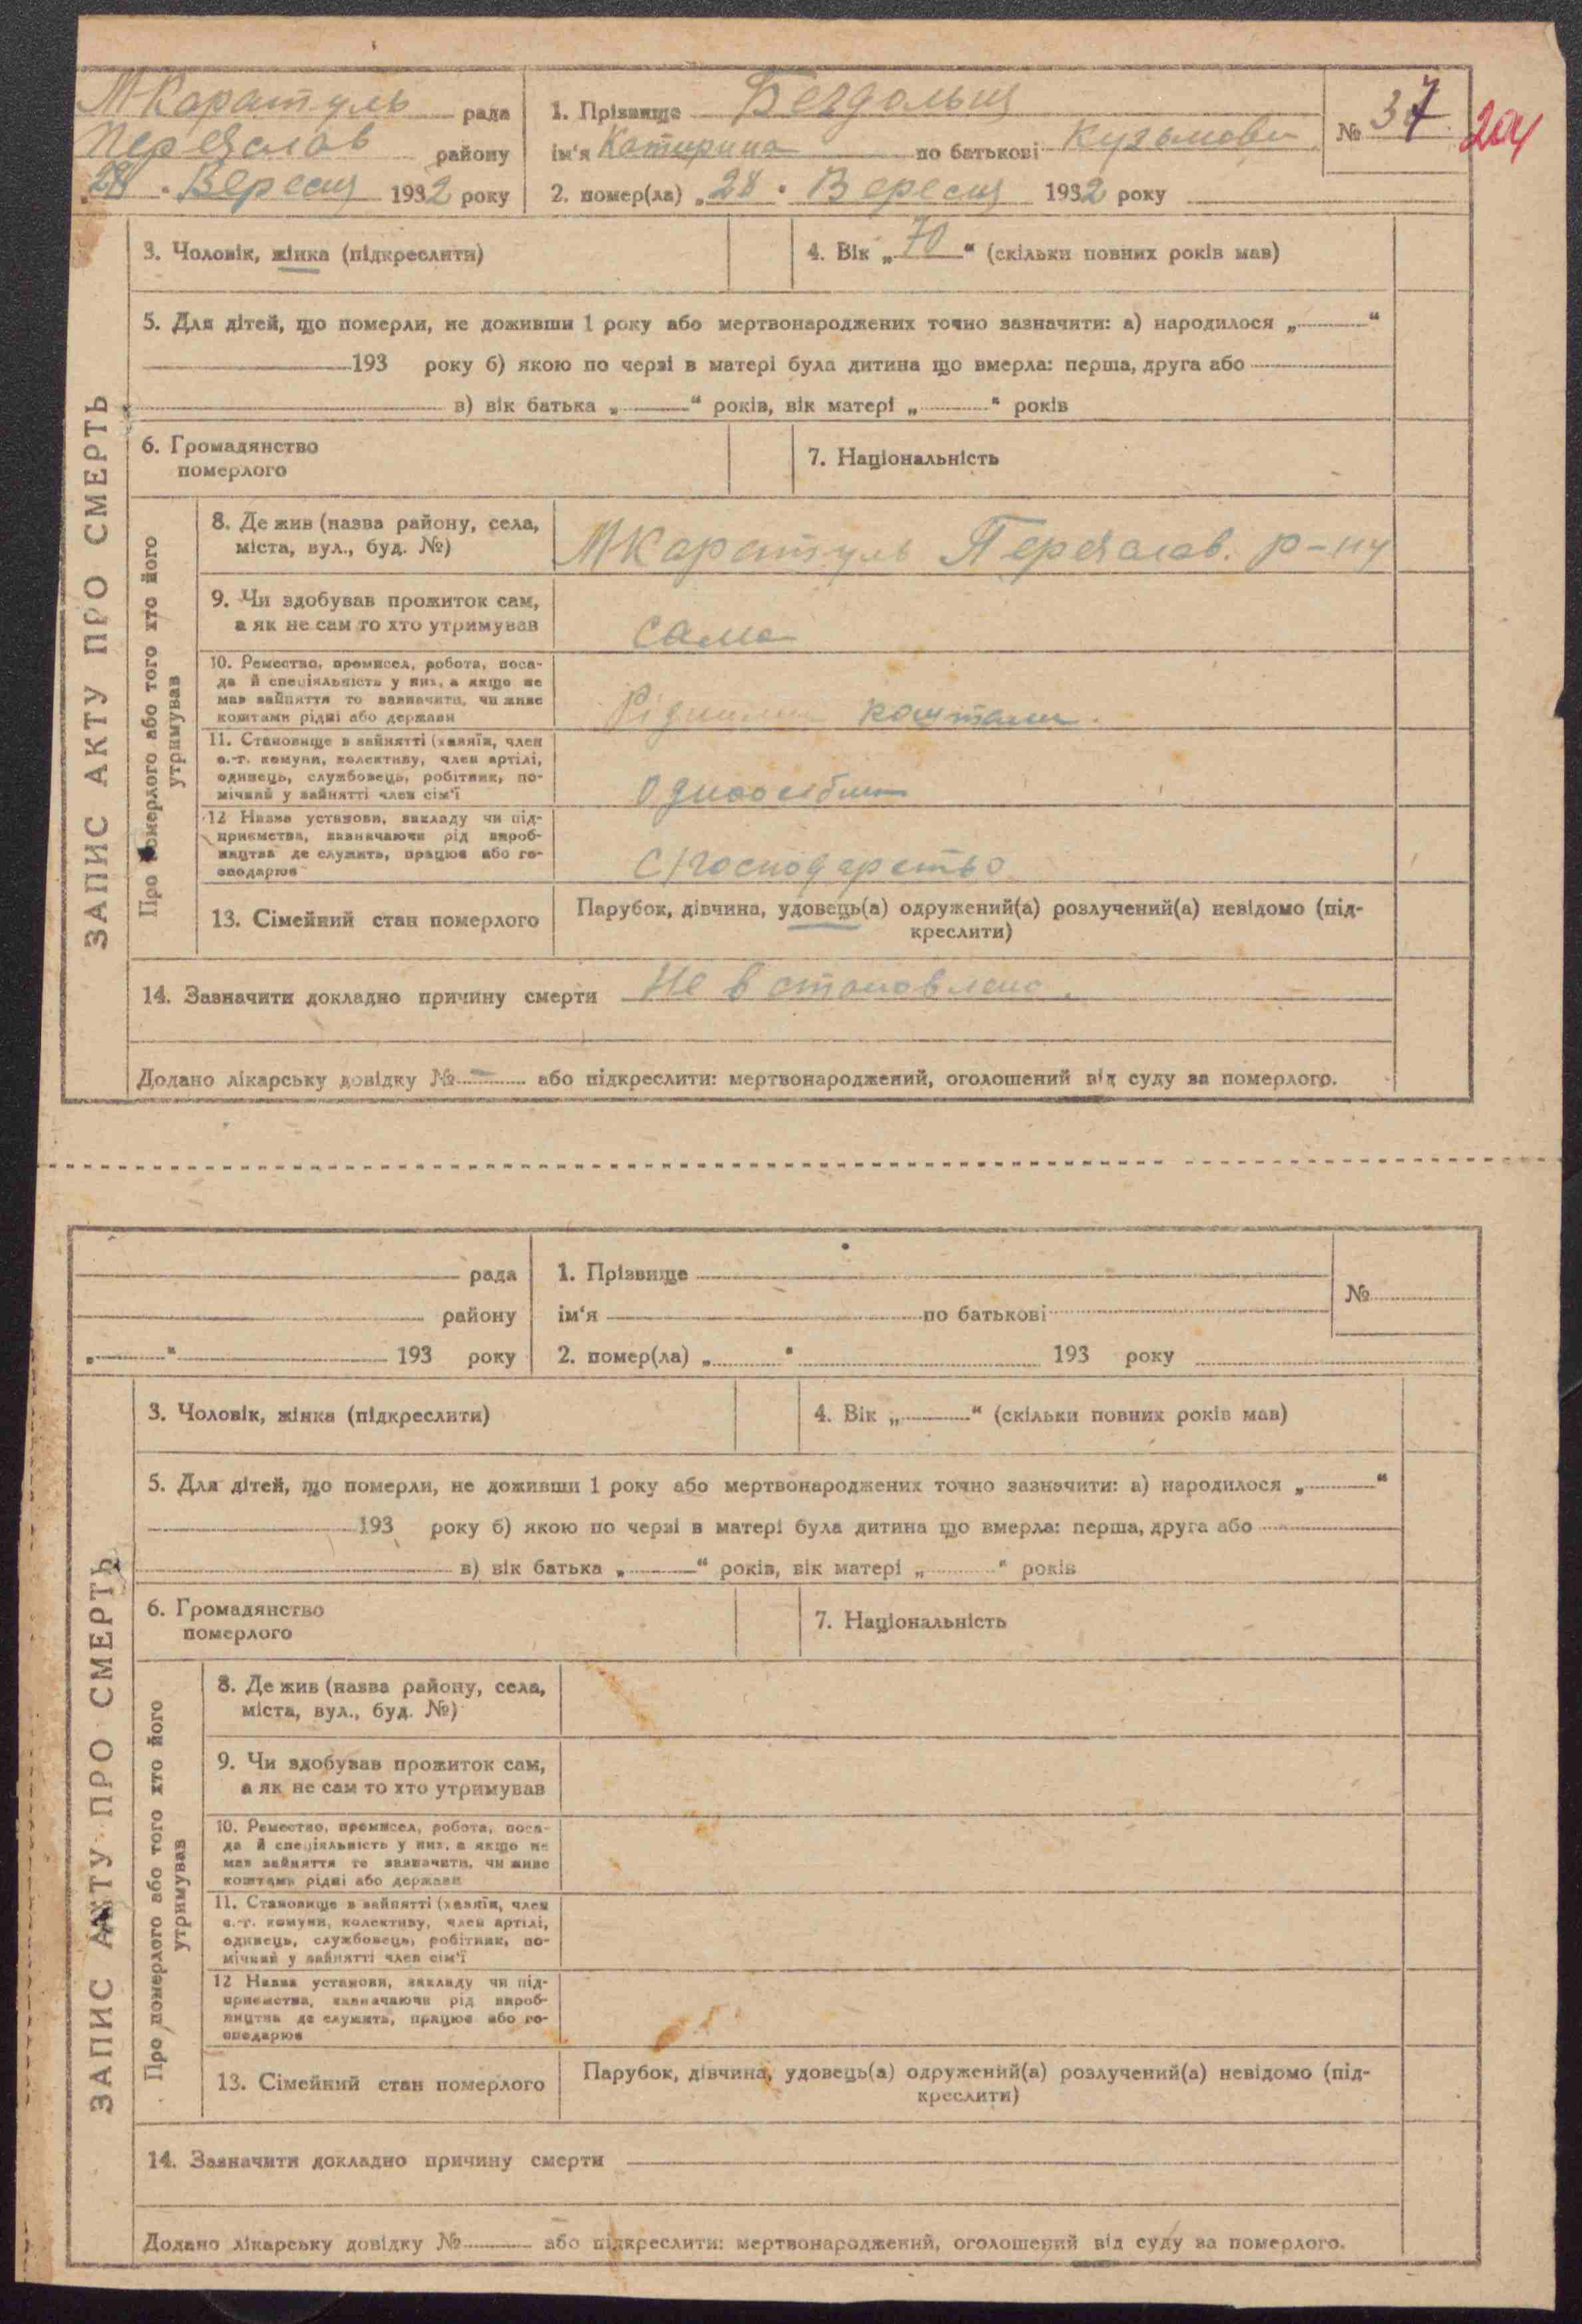 МКаратуль рада
Переяслав району
„28“ Вересня 1932 року
1. Прізвище Бездольня
ім‘я Катирина по батькові Кузьмовн
2. помер(ла) „28“ Вересня 1932 року
№ 37
204
ЗАПИС АКТУ ПРО СМЕРТЬ
3. Чоловік, жінка (підкреслити)
4. Вік „70“ (скільки повних років мав)
5. Для дітей, що померли, не доживши 1 року або мертвонароджених точно зазначити: а) народилося „ “
193 року б) якою по черзі в матері була дитина що вмерла: перша, друга або
в) вік батька „ “ років, вік матері „ “ років
6. Громадянство
померлого
7. Національність
Про померлого або того хто його
утримував
8. Де жив (назва району, села,
міста, вул., буд. №)
МКаратуль Переяслав. р-ну
9. Чи здобував прожиток сам,
а як не сам то хто утримував
сама
10. Ремество, промисел, робота, поса-
да й спеціяльність у них, а якщо не
мав зайняття то зазначити, чи живе
коштами рідні або держави
Рідними коштами.
11. Становище в зайнятті (хазяїн, член
с.-г. комуни, колективу, член артілі,
одинець, службовець, робітник, по-
мічний у зайнятті член сім‘ї
Одноосібник
12 Назва установи, закладу чи під-
приємства, зазначаючи рід вироб-
ництва де служить, працює або го-
сподарює
С/господарство
13. Сімейний стан померлого
Парубок, дівчина, удовець(а) одружений(а) розлучений(а) невідомо (під-
креслити)
14. Зазначити докладно причину смерти Не встановлено.
Додано лікарську довідку № – або підкреслити: мертвонароджений, оголошений від суду за померлого.
рада
району
„ “ 193 року
1. Прізвище
ім‘я по батькові
2. помер(ла) „ “ 193 року
№
ЗАПИС АКТУ ПРО СМЕРТЬ
3. Чоловік, жінка (підкреслити)
4. Вік „ “ (скільки повних років мав)
5. Для дітей, що померли, не доживши 1 року або мертвонароджених точно зазначити: а) народилося „ “
193 року б) якою по черзі в матері була дитина що вмерла: перша, друга або
в) вік батька „ “ років, вік матері „ “ років
6. Громадянство
померлого
7. Національність
Про померлого або того хто його
утримував
8. Де жив (назва району, села,
міста, вул., буд. №)
9. Чи здобував прожиток сам,
а як не сам то хто утримував
10. Ремество, промисел, робота, поса-
да й спеціяльність у них, а якщо не
мав зайняття то зазначити, чи живе
коштами рідні або держави
11. Становище в зайнятті (хазяїн, член
с.-г. комуни, колективу, член артілі,
одинець, службовець, робітник, по-
мічний у зайнятті член сім‘ї
12 Назва установи, закладу чи під-
приємства, зазначаючи рід вироб-
ництва де служить, працює або го-
сподарює
13. Сімейний стан померлого
Парубок, дівчина, удовець(а) одружений(а) розлучений(а) невідомо (під-
креслити)
14. Зазначити докладно причину смерти
Додано лікарську довідку № або підкреслити: мертвонароджений, оголошений від суду за померлого.